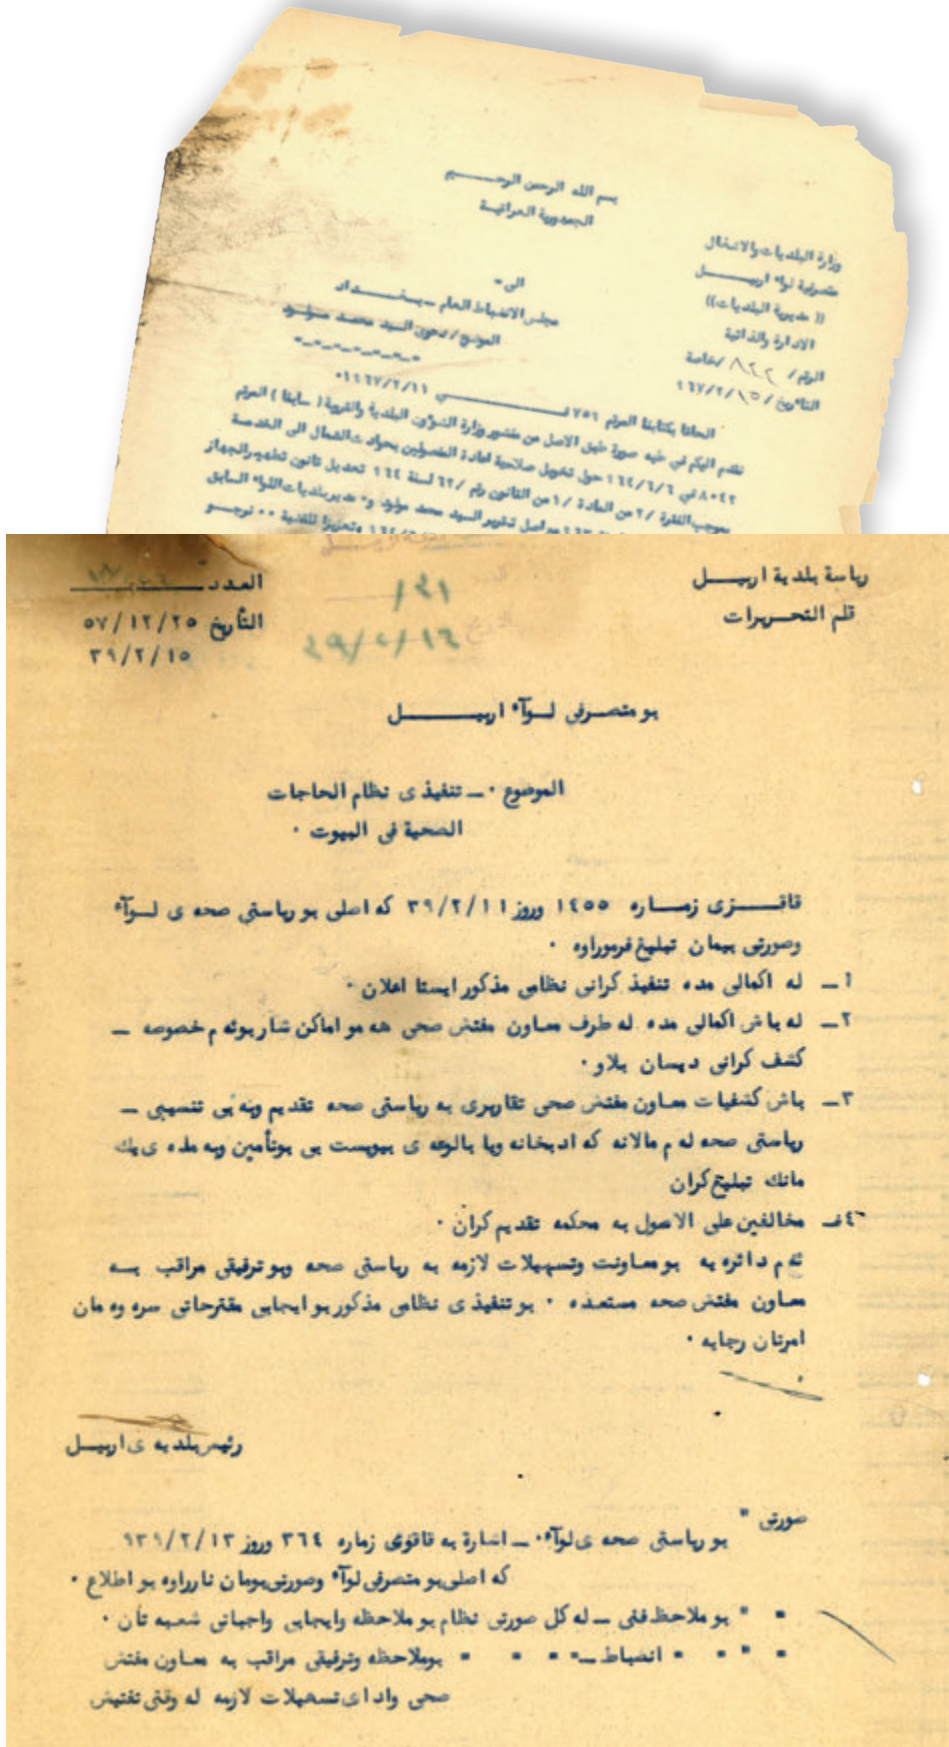 بسم الله الرحمن الرحـــــــيم
الجمهورية العراقية
وزارة البلديات والاشغال
متصرفية لواء اربيــــــــل
(( مديرية البلديات))
الادارة والذاتية
الرقم / ٨٢٢ /خاصة
التاريخ / ١٥ /٩٦٧/٢
الى -
مجلس الانضباط العام ـ بـغـــــــداد
الموضوع/ دعوى السيد محمد مولـــود
الحاقا بكتابنا المرقم ٧٥٦ فــــــــــــي ١٩٦٧/٢/١١٠
نقدم اليكم في طيه صورة طبق الاصل من منشور وزارة الشؤون البلدية والقروية ( سابقا ) المرقم
٨٠٤٢ في ٩٦٤/٦/٦ حول تخويل صلاحية اعادة المفصولين بحوادث الشمال الى الخدمة
بموجب الفقرة /٢ من المادة /١ من القانون رقم /٦٢ لسنة ٩٦٤ تعديل قانون تطهير الجهاز
اصل تقرير السيد محمد مولود و مدير بلديات اللواء السابق
وتعزيزا للقضية ٠٠ نرجـــو
رياسة بلدية اربيـــــل
قلم التحـــريرات
العدد
التأريخ ٥٧/١٢/٢٥
٣٩/٢/١٥
١٣١
بو متصــرفى لــوآء اربيــــــــل
الموضوع ٠ ــ تنفيذ ى نظام الحاجات
الصحية فى البيوت ٠
قاقــــزى زمــاره ١٤٥٥ وروز ٣٩/٢/١١ كه اصلى بو رياستى صحه ى لــوآء
وصورتى بيمان تبليغ فرموراوه ٠
١ــ له اكمالى مده تنفيذ كرانى نظامى مذكور ايستا اعلان ٠
٢ــ له پاش اكمالى مده له طرف معـاون مفتش صحى هه مو اماكن شار بوئه م خصوصه ــ
كشف كرانى ديسان بلاو ٠
٣ــ پاش كشفيات معـاون مفتش صحى تقاريرى به رياستى صحه تقديم وبه پى تنسيبى ــ
رياستى صحه له م مالانه كه ادبخانه ويا بالوعه ى پيويست بى بوتأمين وبه مده ى يك
مانك تبليغ كران
٤ــ مخالفين على الاصول به محكمه تقديم كران ٠
ئه م دائره يه بو معـاونت وتسهيلات لازمه به رياستى صحه وبو ترفيقى مراقب بـــه
معـاون مفتش صحه مستعـده ٠ بو تنفيذ ى نظامى مذكور بو ايجابى مقترحاتى سره وه مان
امرتان رجايه ٠
رئيس بلديه ى اربيــل
صورتى "
بو رياستى صحه ى لوآء٠ ــ اشارة به قاقزى زماره ٣٦٤ وروز ٩٣٩/٢/١٣
كه اصلى بو متصرفى لوآء وصورتى بومان نارراوه بو اطلاع ٠
" " بو ملاحظ فنى ــ له كل صورتى نظام بو ملاحظه وايجابى واجباتى شعبه تأن ٠
" " " " انضباط ــ " " " " بوملاحظه وترفيقى مراقب به معـاون مفتش
صحى وادا ى تسهيلات لازمه له وقتى تفتيش